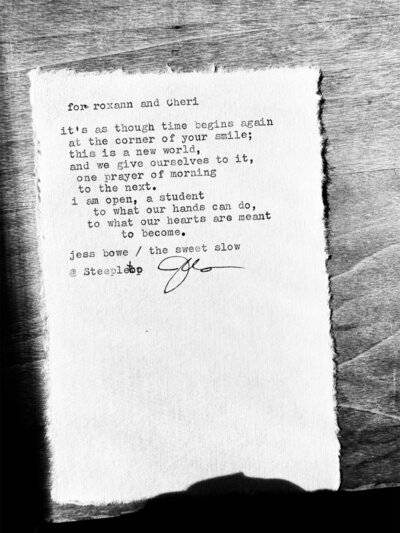 for roxann and Cheri
it's as though time begins again
at the corner of your smile;
this is a new world,
and we give ourselves to it,
one prayer of morning
to the next.
i am open, a student
to what our hands can do,
to what our hearts are meant
to become.
jess bowe / the sweet slow
@